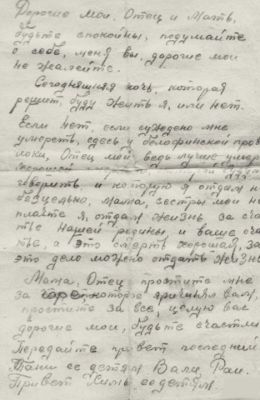 Дорогие мои, Отец и Мать,
будьте спокойны, подумайте
о себе, меня вы, дорогие мои
не жалейте.
Сегодняшняя ночь, которая
решит, буду жить я, или нет.
Если нет, если суждено мне
умереть, здесь у
Отец мой, ведь лучше
говорить, и которую я отдал
Мама, сестры мои не
плачте я, отдам жизнь за сча
тье нашей родины, и ваше
а это смерть хорошая, за
это дело можно отдать жизнь
Мама, Отец простите мне
за горе, которое причинял вам,
простите за все, целую вас
дорогие мои, будьте счастли
Передайте привет последний
Тани с детям Вали, Раи.
Привет Симе с детям.